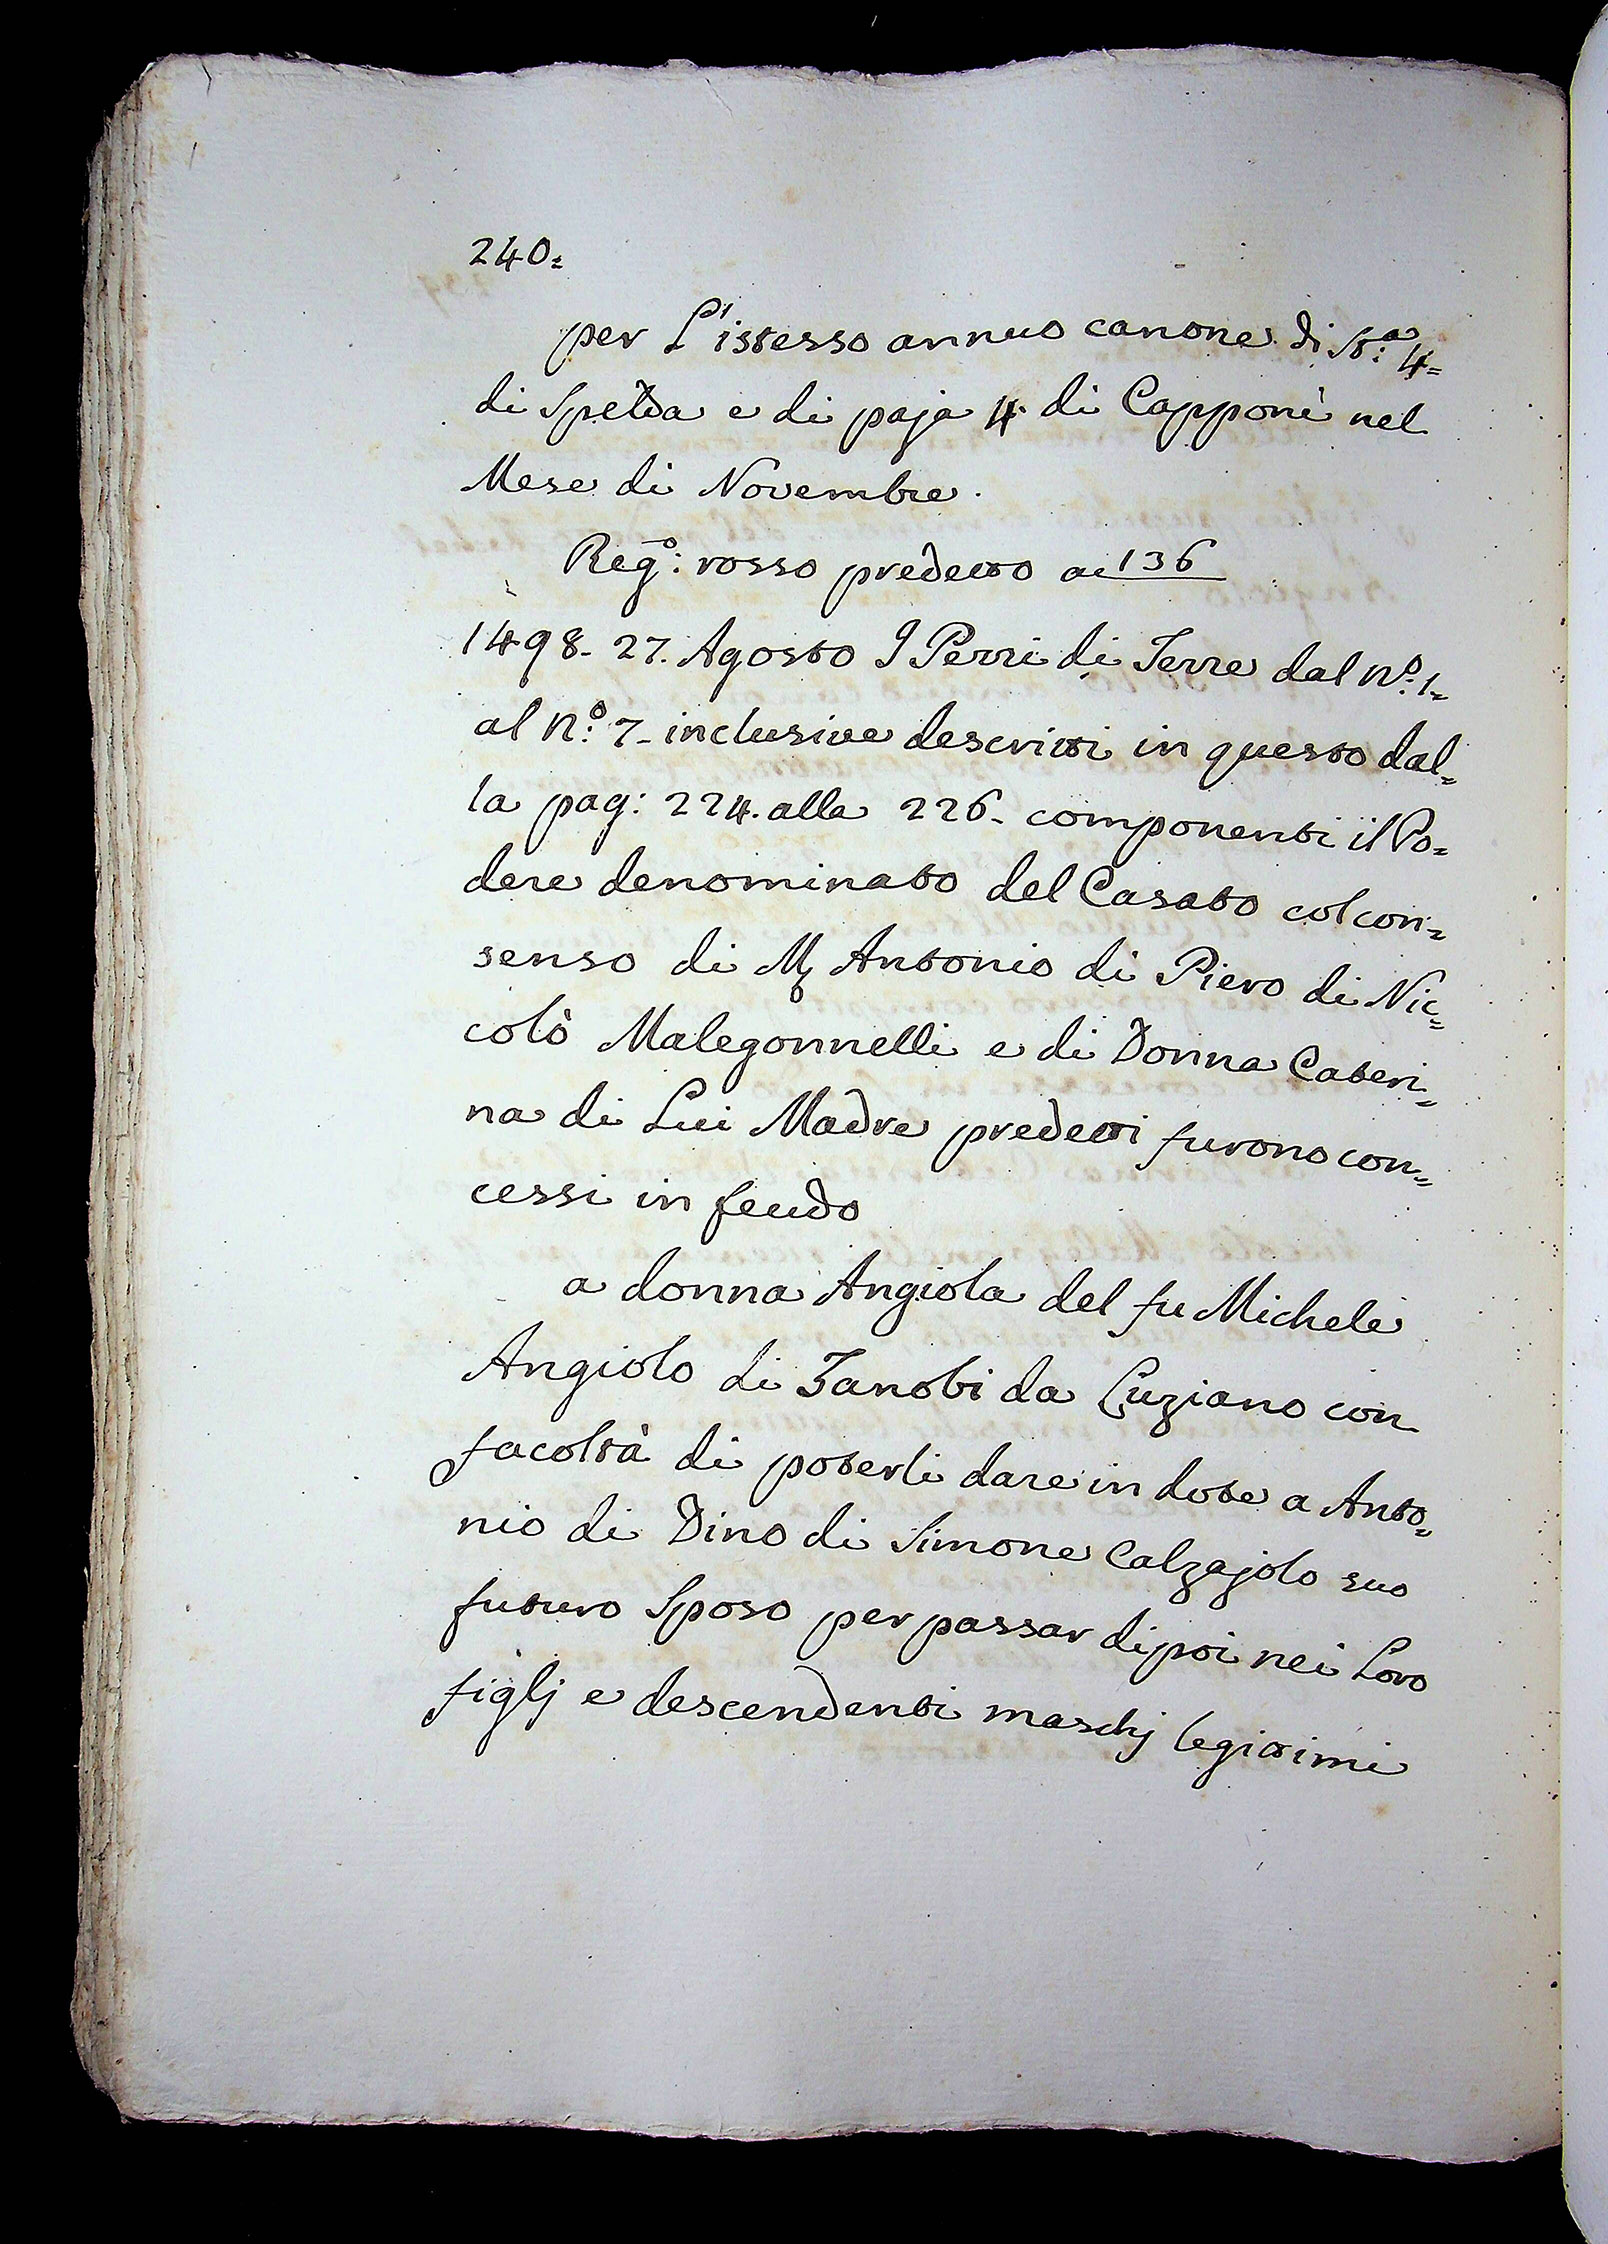 240=
per L'istesso annuo canone di St:a 4=
di Spelda e di paja 4. di Capponi nel
Mese di Novembre.
Reg:o rosso predetto ac 136
1498- 27. Agosto I Pezzi di Terre dal N:o 1=
al N:o 7- inclusive descritti in questo dal=
la pag: 224. alla 226- componenti il Po=
dere denominato del Casato col con=
senso di M Antonio di Piero di Nic=
colò Malegonnelli e di Donna Cateri=
na di Lui Madre predetti furono con=
cessi in feudo
a donna Angiola del fu Michele
Angiolo di Zanobi da Luziano con
facoltà di poterli dare in dote a Anto=
nio di Dino di Simone Calzajolo suo
futuro Sposo per passar dipoi nei Loro
figlj e descendenti maschj legittimi